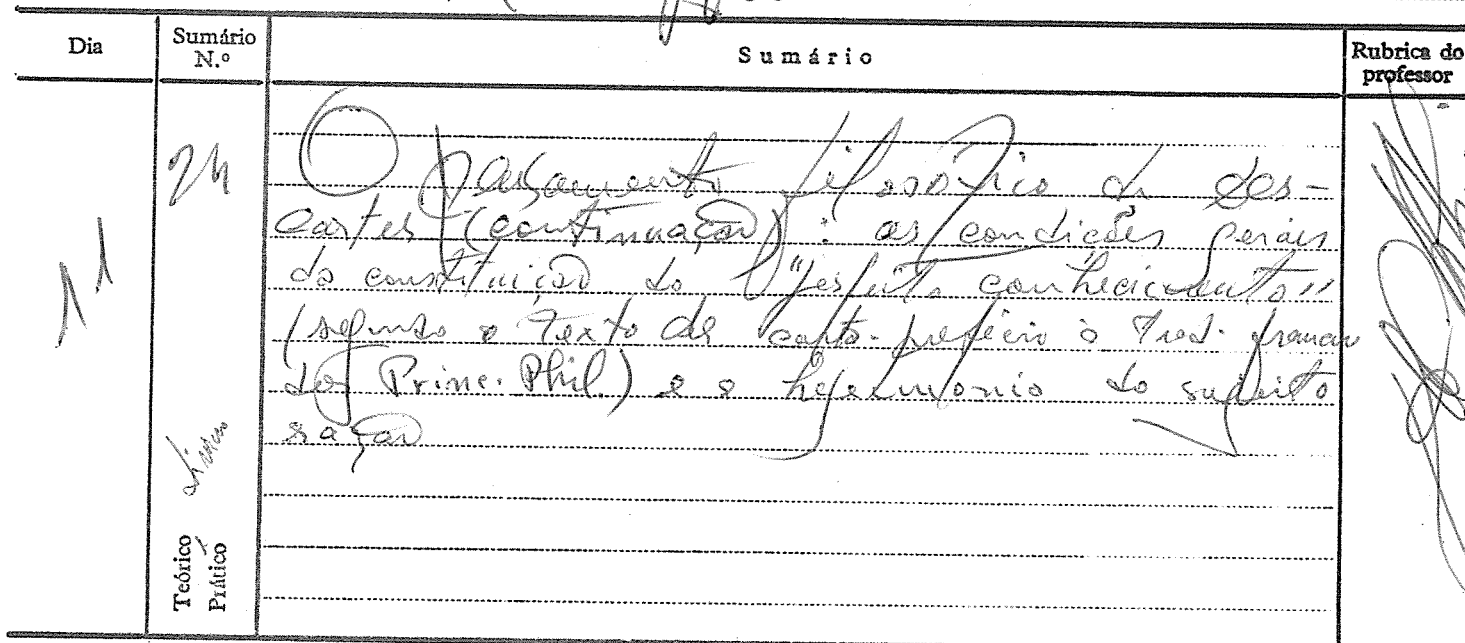 Dia
Sumário
N.º
Sumário
Rubrica do
professor
11
24
O pensamento filosófico de Des-
cartes (continuação): as condições gerais
da constituição do "perfeito conhecimento"
(segundo o texto da carta-prefácio à Trad. francesa
dos Princ. Phil.) e a hegemonia do sujeito
razão
Teórico
Prático